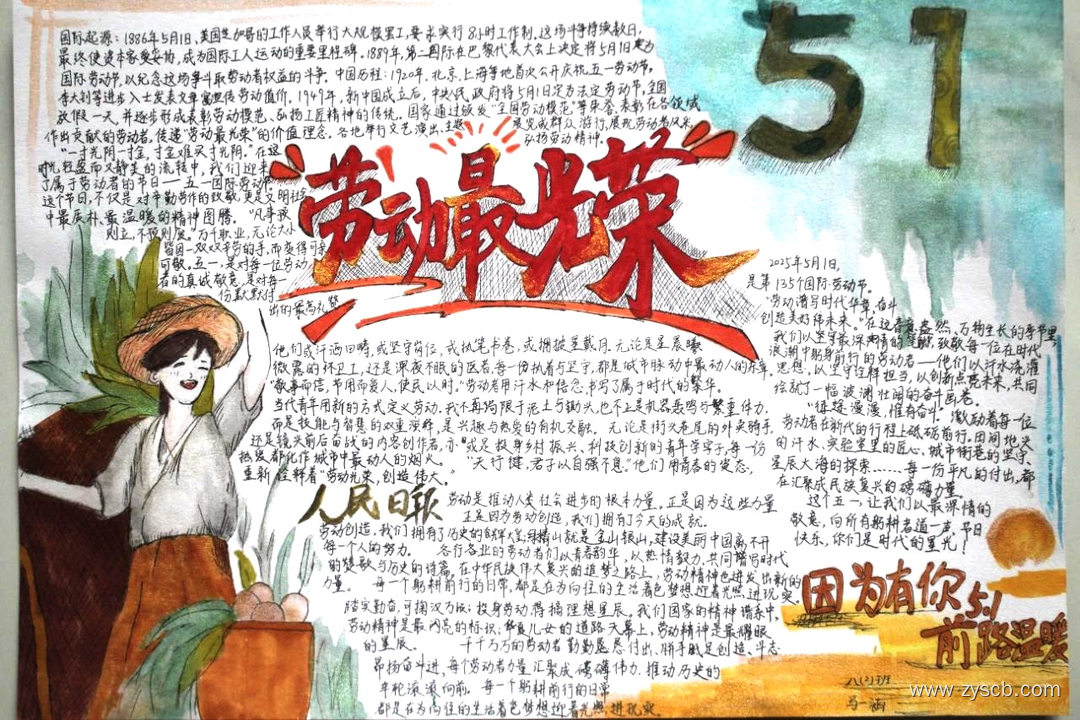 国际起源：1886年5月1日，美国芝加哥的工作人员举行大规模罢工，要求实行8小时工作制，这场斗争持续数日，
最终使资本家妥协，成为国际工人运动的重要里程碑。1889年，第二国际在巴黎代表大会上决定将5月1日定为
国际劳动节，以纪念这场争斗取劳动者权益的斗争。中国历程：1920年，北京，上海等地首次公开庆祝五一劳动节，
李大钊等进步人士发表文章宣传劳动值价。1949年，新中国成立后，中央人民政府将5月1日定为法定劳动节，全国
放假一天，并逐步形成表彰劳动模范、弘扬工匠精神的传统。国家通过颁发"全国劳动模范"等荣誉，表彰在各领域
作出交献的劳动者，传递"劳动最光荣"的价值理念。各地举行文艺演出、主题展览或群众游行，展现劳动者风采
弘扬劳动精神。
"一寸光阴一寸金，寸金难买寸光阴。"在这
时光轻盈而又静美的流转中，我们迎来
了属于劳动者的节日—五一国际劳动节
这个节日，不仅是对辛勤劳作的致敬，更是文明社会
中最质朴、最温暖的精神图腾。"凡事预
则立，不预则废。"万千职业，无论大小
皆因一双双辛劳的手，而变得可亲
可敬。五一，是对每一位劳动
者的真诚敬意，是对每一
份默默付
出的最高礼赞
劳动最光荣
51
2025年5月1日，
是第135个国际劳动节。
"劳动谱写时代华章，奋斗
创造美好伟未来。"在这春意盎然，万物生长的季节里
我们以坚守最深声情的笔触，致敬每一位在时代
浪潮中躬耕前行的劳动者—他们以汗水浇灌
思想，以坚守诠释担当，以创新点亮未来，共同
绘就了一幅波澜壮阔的奋斗画卷。
"征途漫漫，惟有奋斗"激励着每一位
劳动者在新时代的行程上砥砺前行。田间地头
的汗水、实验室里的匠心、城市街巷的坚守、
星辰大海的探索……每一份平凡的付出，都
在汇聚成民族复兴的磅礴力量
这个五一，让我们以最深情的
敬意，向所有躬耕者道一声：节日
快乐，你们是时代的星光！
他们或汗洒田畴，或坚守岗位，或执笔书卷，或拥披星戴月，无论是星晨曦
微露的环卫工，还是深夜不眠的医者，每一份执着与坚守，都是城市脉动中最动人的乐章
"敬事而信，节用而爱人，使民以时。"劳动者用汗水和信念，书写了属于时代的繁华。
当代青年用新的方式定义劳动，我不再局限于泥土与锄头，也不止是机器轰鸣与繁重体力，
而是技能与智慧的双重演绎，是兴趣与热爱的有机交融。无论是街头巷尾的外卖骑手，
还是镜头前后奋战的内容创作者，亦或是投身乡村振兴、科技创新的青年学子，每一份
热爱都化作城市中最动人的烟火。"天行健，君子以自强不息。"他们用青春的姿态，
重新诠释着"劳动光荣，创造伟大。"
人民日报
劳动是推动人类社会进步的根本力量，正是因为这些力量
正是因为劳动创造，我们拥有了今天的成就。
劳动创造，我们拥有了历史的辉煌，绿精山就是金山银山，建设美丽中国离不开
每一个人的努力。各行各业的劳动者们以青春韵华，以热情毅力，共同谱写时代
的赞歌与历史的诗篇。在中华民族伟大复兴的追梦之路上，劳动精神也迸发出新的
力量。每一个躬耕前行的日常，都是在为向往的生活着色，梦想迎着光照，进现实
踏实勤奋，可掬汉力；投身劳动得摘理想星辰。我们国家的精神谱系中，
劳动精神是最闪亮的标识；华夏儿女的道路天幕上，劳动精神是最耀眼
的星辰。千千万万的劳动者勤勤恳恳付出，骄手赋是创造、斗志
昂扬奋斗进，每个劳动者力量汇聚成磅礴伟力，推动历史的
年轮滚滚向前，每一个躬耕前行的日常
都是在为向往的生活着色梦想迎着光照，进现实。
因为有你
5.1
前路温暖
八(2)班
马一涵
www.zyscb.com